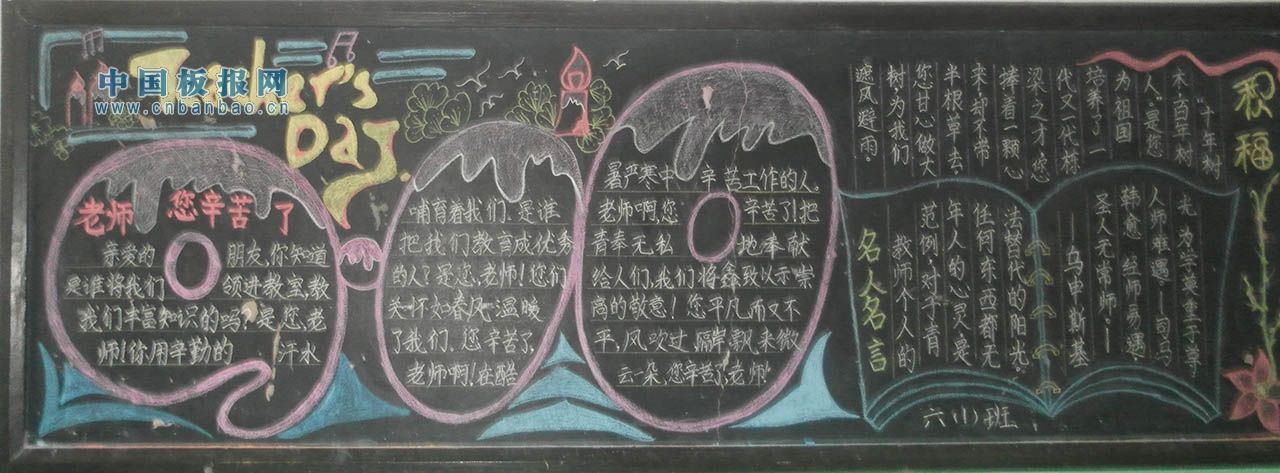 中国板报网
www.cnbanbao.cn
Teacher's
Day
老师 您辛苦了
亲爱的 朋友,你知道
是谁将我们 领进教室,教
我们丰富知识的吗?是您,老
师!你用辛勤的 汗水
哺育着我们.是谁
把我们教育成优秀
的人?是您,老师!您们
关怀如春风.温暖
了我们.您辛苦了,
老师啊!在酷
暑严寒中,辛苦工作的人.
老师啊,您 辛苦了!把
青奉无私 地奉献
给人们,我们将鑫致以示崇
高的敬意!您平凡而又不
平,风吹过,隔岸飘来微
云一朵,您辛苦了,老师!
积福
"十年树
木,百年树
人.是您
为祖国
培养了一
代又一代栋
梁之才.您
捧着一颗心
来却不带
半根草去,
您甘心做大
树,为我们
遮风避雨.
名人名言
教师个人的
范例,对于青
年人的心灵是
任何东西都无
法替代的阳光.
——乌申斯基
圣人无常师—
韩愈 经师易遇
人师难遇—司马
光 为学莫重于尊
六(1)班